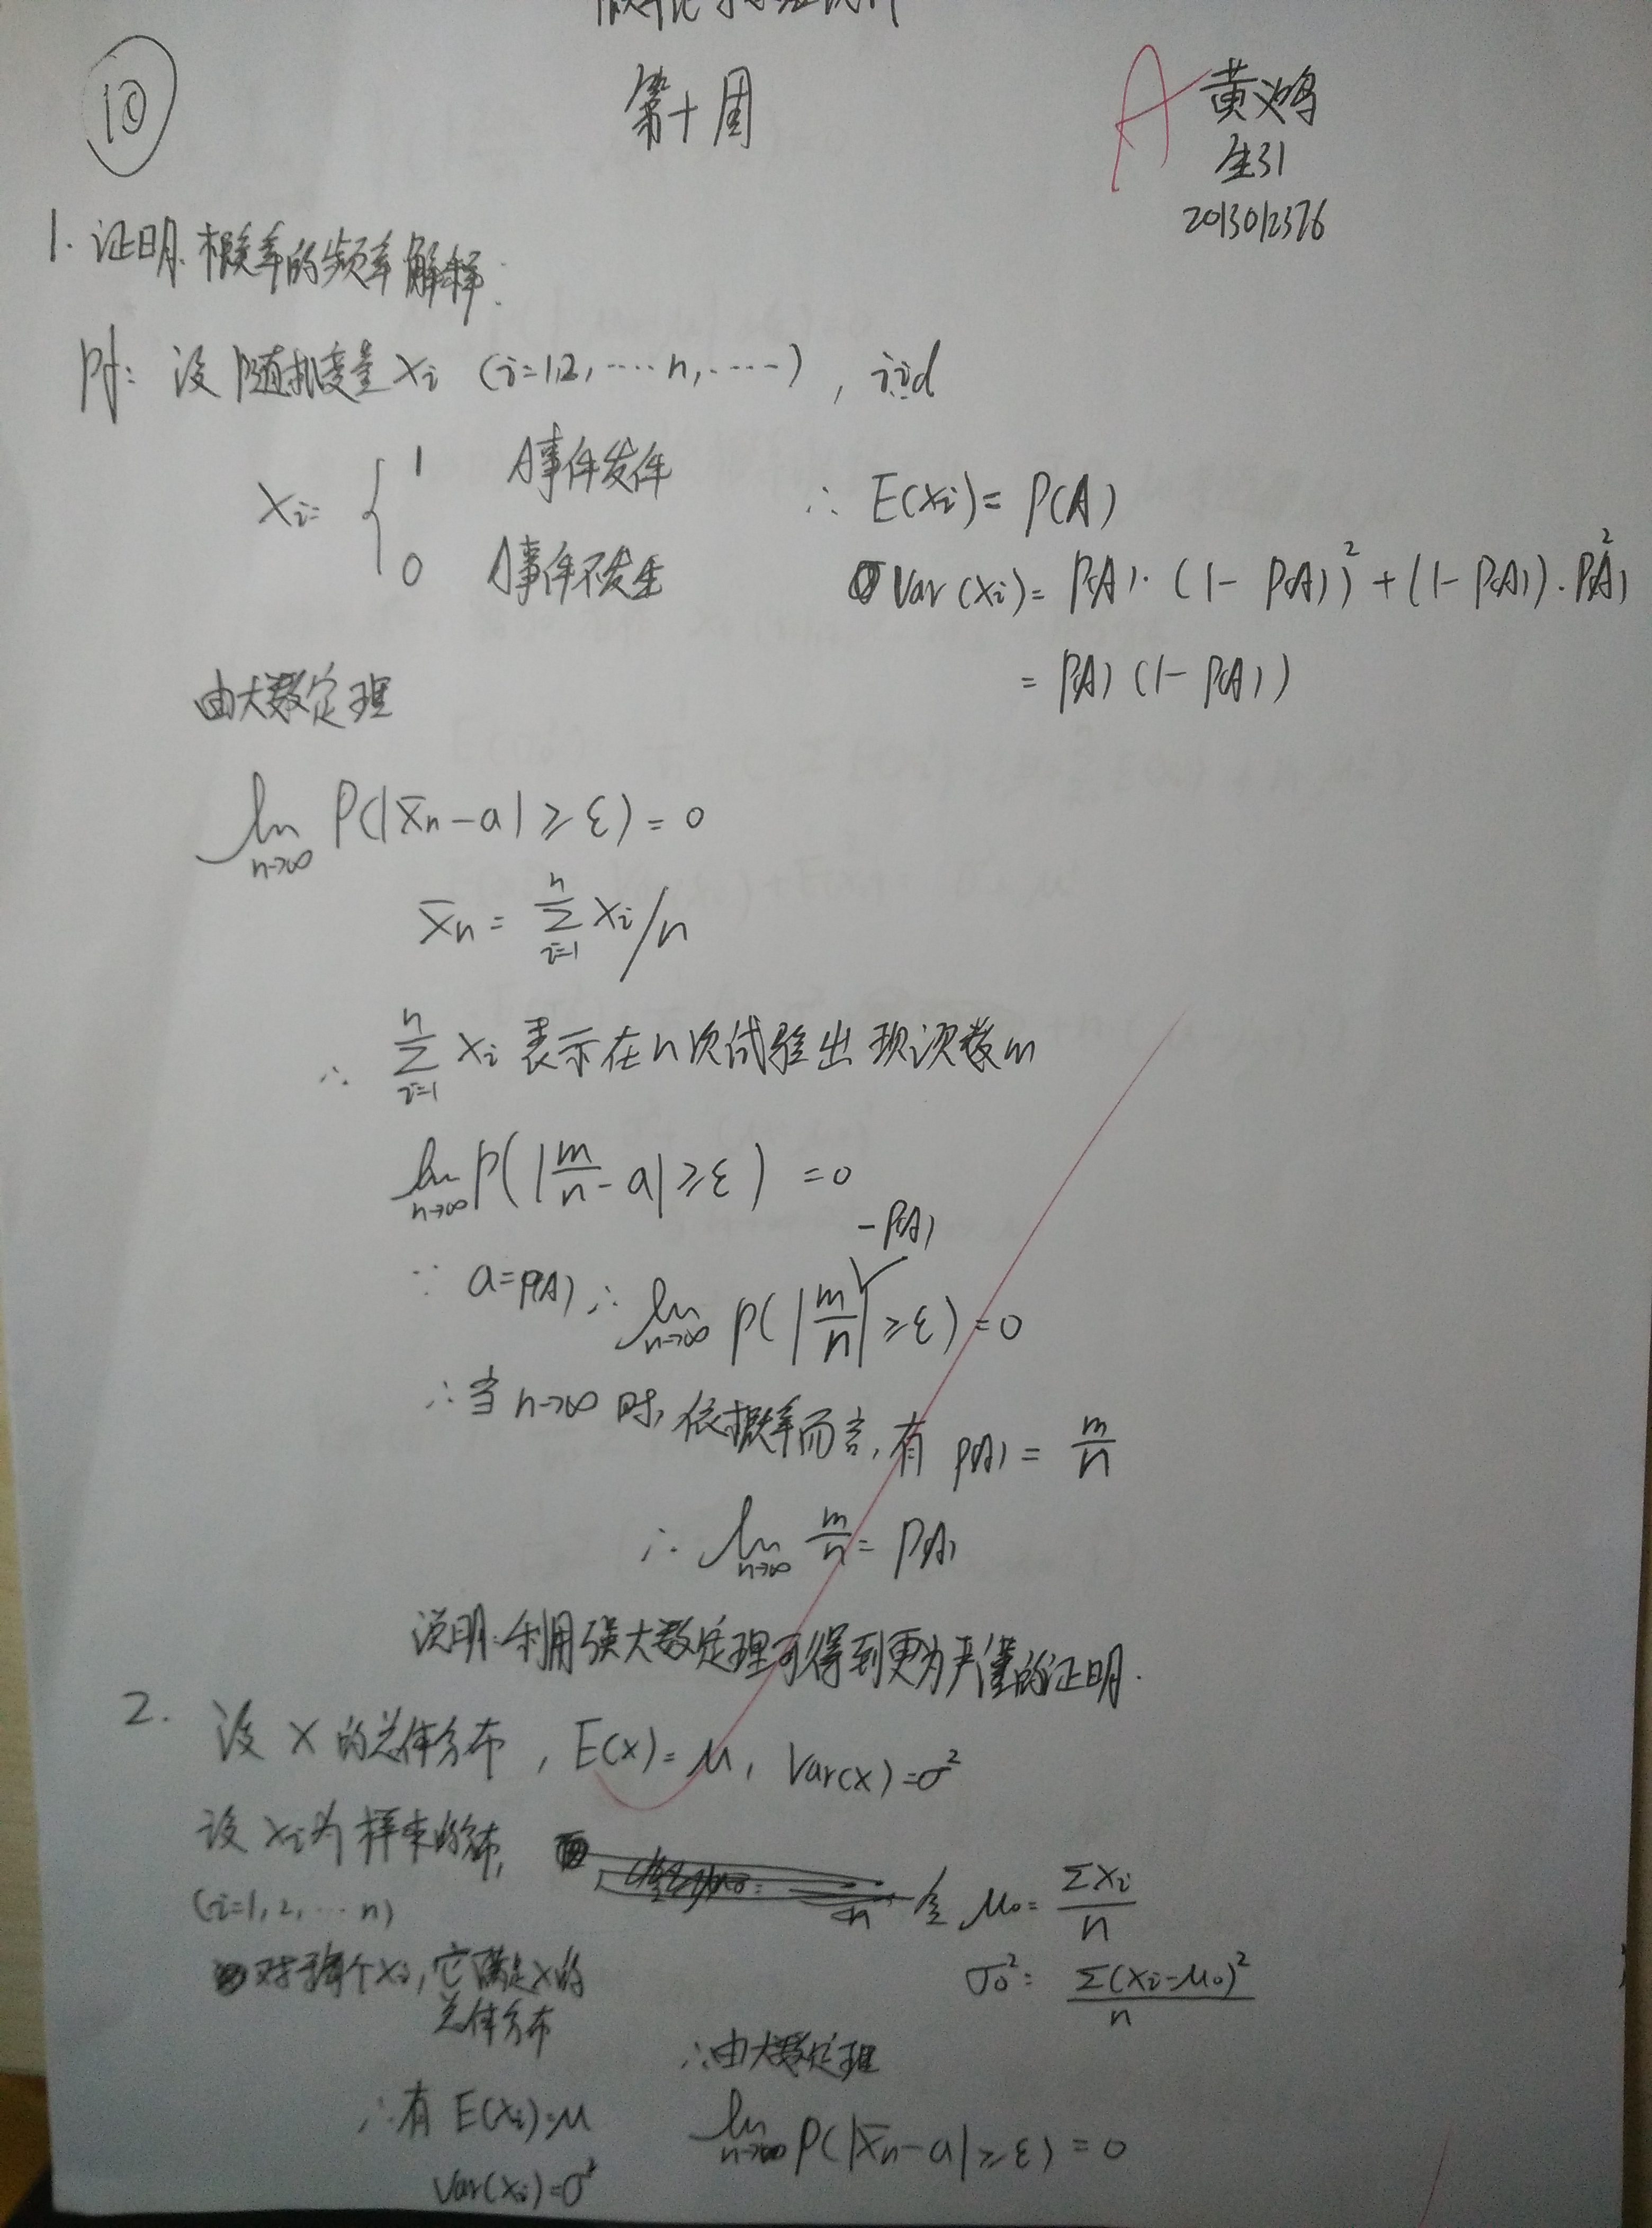 ⑩
第十周
A
黄鸿
生31
2013012376
1. 证明概率的频率解释:
pf: 设随机变量 Xi (i=1,2,……n,……), iid
Xi= { 1 A事件发件
0 A事件不发生
∴ E(Xi)= P(A)
Var(Xi)= P(A)·(1-P(A))²+(1-P(A))·P(A)²
= P(A)(1-P(A))
由大数定理
lim n→∞ P(|X̄n-a|≥ε)=0
X̄n = Σ(i=1→n) Xi/n
∴ Σ(i=1→n) Xi 表示在n次试验出现次数m
lim n→∞ P(|m/n - a|≥ε) =0
∵ a=P(A) ∴ lim n→∞ P(|m/n -P(A)|≥ε)=0
∴当 n→∞ 时, 依概率而言, 有 P(A) = m/n
∴ lim n→∞ m/n = P(A)
说明:利用强大数定理可得到更为严谨的证明.
2. 设 X 的总体分布, E(X)=μ, Var(X)=σ²
设 Xi为样本的分布,
(i=1,2,…n)
令 μ₀= ΣXi/n
σ₀²= Σ(Xi-μ₀)²/n
对于每个Xi, 它满足X的
总体分布
∴有 E(Xi)=μ
Var(Xi)=σ²
∴由大数定理
lim n→∞ P(|X̄n-a|≥ε)=0